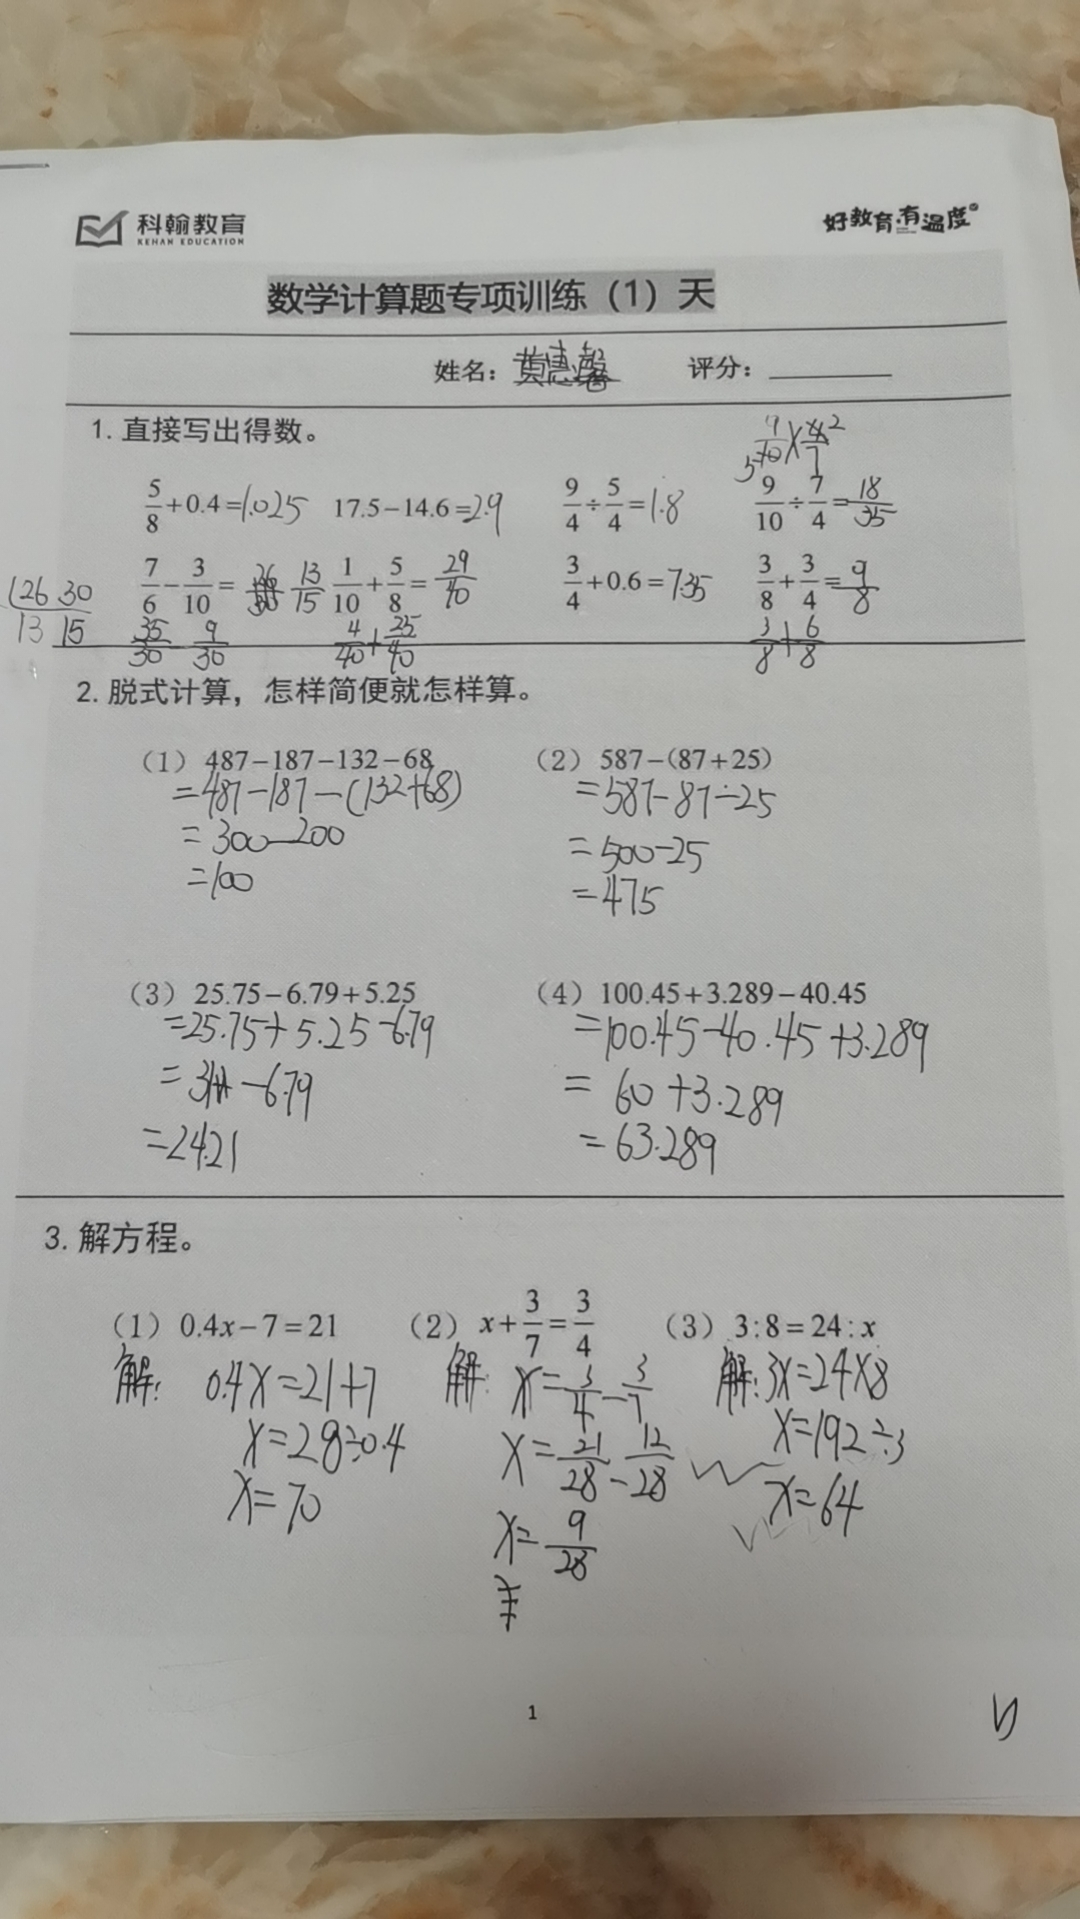 科翰教育
KEHAN EDUCATION
好教育·有温度
数学计算题专项训练（1）天
姓名： 评分：
1. 直接写出得数。
9/10×4/7 2
5
5/8+0.4=1.025 17.5−14.6=2.9 9/4÷5/4=1.8 9/10÷7/4=18/35
7/6−3/10= 13/15 1/10+5/8=29/40 3/4+0.6=7.35 3/8+3/4=9/8
26 30
13 15
35/30 9/30 4/40+25/40 3/8+6/8
2. 脱式计算，怎样简便就怎样算。
（1）487−187−132−68 （2）587−(87+25)
=487−187−(132+68) =587−87−25
=300−200 =500−25
=100 =475
（3）25.75−6.79+5.25 （4）100.45+3.289−40.45
=25.75+5.25−6.79 =100.45−40.45+3.289
=31−6.79 =60+3.289
=24.21 =63.289
3. 解方程。
（1）0.4x−7=21 （2）x+3/7=3/4 （3）3:8=24:x
解: 0.4x=21+7 解: x=3/4−3/7 解: 3x=24×8
x=28÷0.4 x=21/28−12/28 x=192÷3
x=70 x=9/28 x=64
1